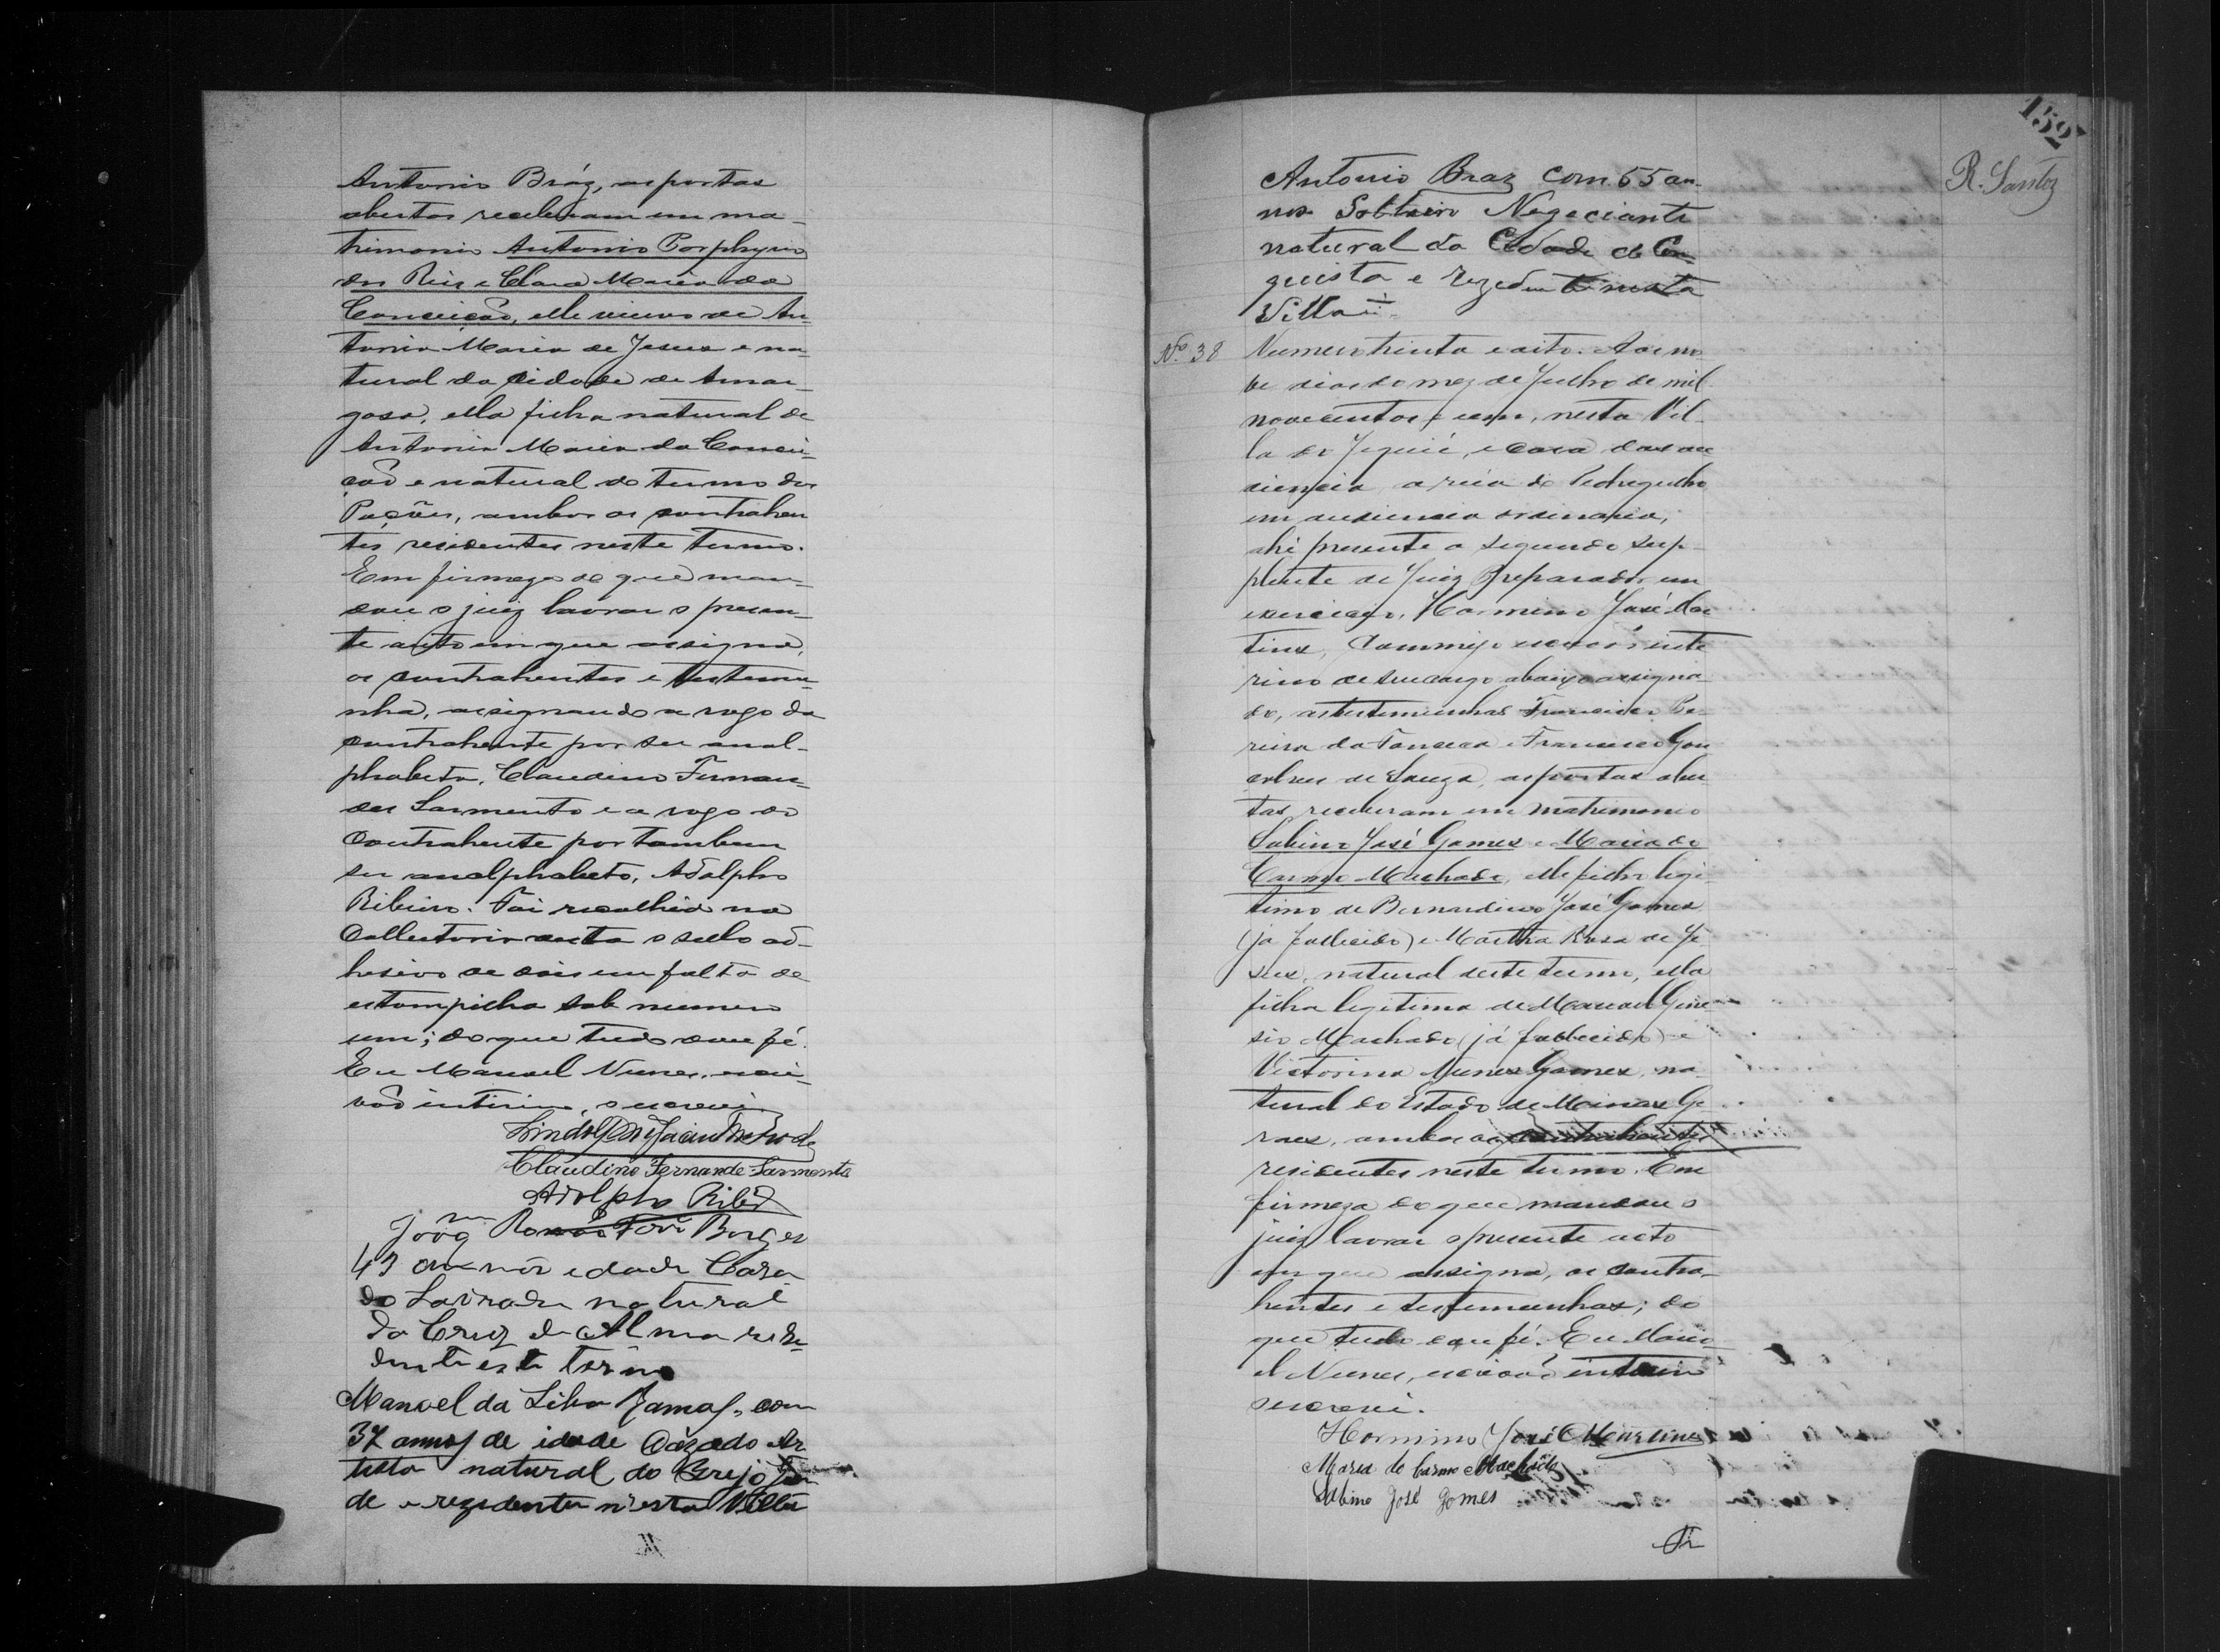 Antonio Bráz, as portas
abertas receberam em ma-
trimonio Antonio Porphyrio
dos Reis e Clara Maria da
Conceicão, elle viuvo de An-
tonia Maria de Jesus e na-
tural da cidade de Amar-
gosa, ella filha natural de
Antonia Maria da Concei-
cão e natural do termo dos
Poções, ambos os contrahen
tes residentes neste termo.
Em firmeza do que man-
dou o juiz lavrar o presen-
te acto em que assigna,
os contrahentes e testemu-
nha, assignando a rogo da
contrahente por ser anal-
phabeta, Claudino Fernan-
des Sarmento e a rogo do
contrahente por tambem
ser analphabeto, Adolpho
Ribeiro. Foi recolhido na
Collectoria desta o sello ad-
hesivo de dois em falta de
estampilha sob numero
um; do que tudo dou fé.
Eu Manoel Nunes, escri-
vão interino, o escrevi
Lindolpho Jacintho
Claudino Fernande Sarmento
Adolpho Ribr
João Borges
43 annos edade Casa
do Lavrador natural
da Cruz da Alma rezi-
dente este termo
Manoel da Silva Ramos, com
37 annos de idade Cazado Ar
tista natural do Brejo Gran
de e rezidente n'esta Villa
152
R. Santos
Antonio Braz com 55 an-
nos Solteiro Negociante
natural da Cidade de Con-
quista e rezidente nesta
Villa
Nº 38 Numero trinta e oito. Aos no
ve dias do mez de Julho de mil
novecentos e um, nesta Vil-
la do Jequié, e casa das au
diencia a rúa do Pedregulho
em audiencia ordinaria,
ahi presente o segundo sup-
plente de Juiz Preparador em
exercicio, Hormino José Mar
tins, Commigo escrivão inte
rino de seu cargo abaixo assigna-
do, as testemunhas Francisco Pe-
reira da Fonseca e Francisco Gon
calves de Souza, as portas aber
tas, receberam em matrimonio
Sabino José Gomes e Maria do
Carmo Machado, elle filho legi-
timo de Bernardino José Gomes
(ja fallecido) e Martha Rosa de Je
sus, natural deste termo, ella
filha legitima de Manoel Gene-
sio Machado (já fallecido) e
Victorina Nunes Gomes, na-
tural do Estado de Minas Ge-
raes, ambos os contrahentes
residentes neste termo. Em
firmeza do que mandou o
juiz lavrar o presente acto
em que assigna, os contra-
hentes e testemunhas; do
que tudo dou fé. Eu Mano-
el Nunes, escrivão interino
escrevi.
Hormino José Martins
Maria do Carmo Machado
Sabino José Gomes